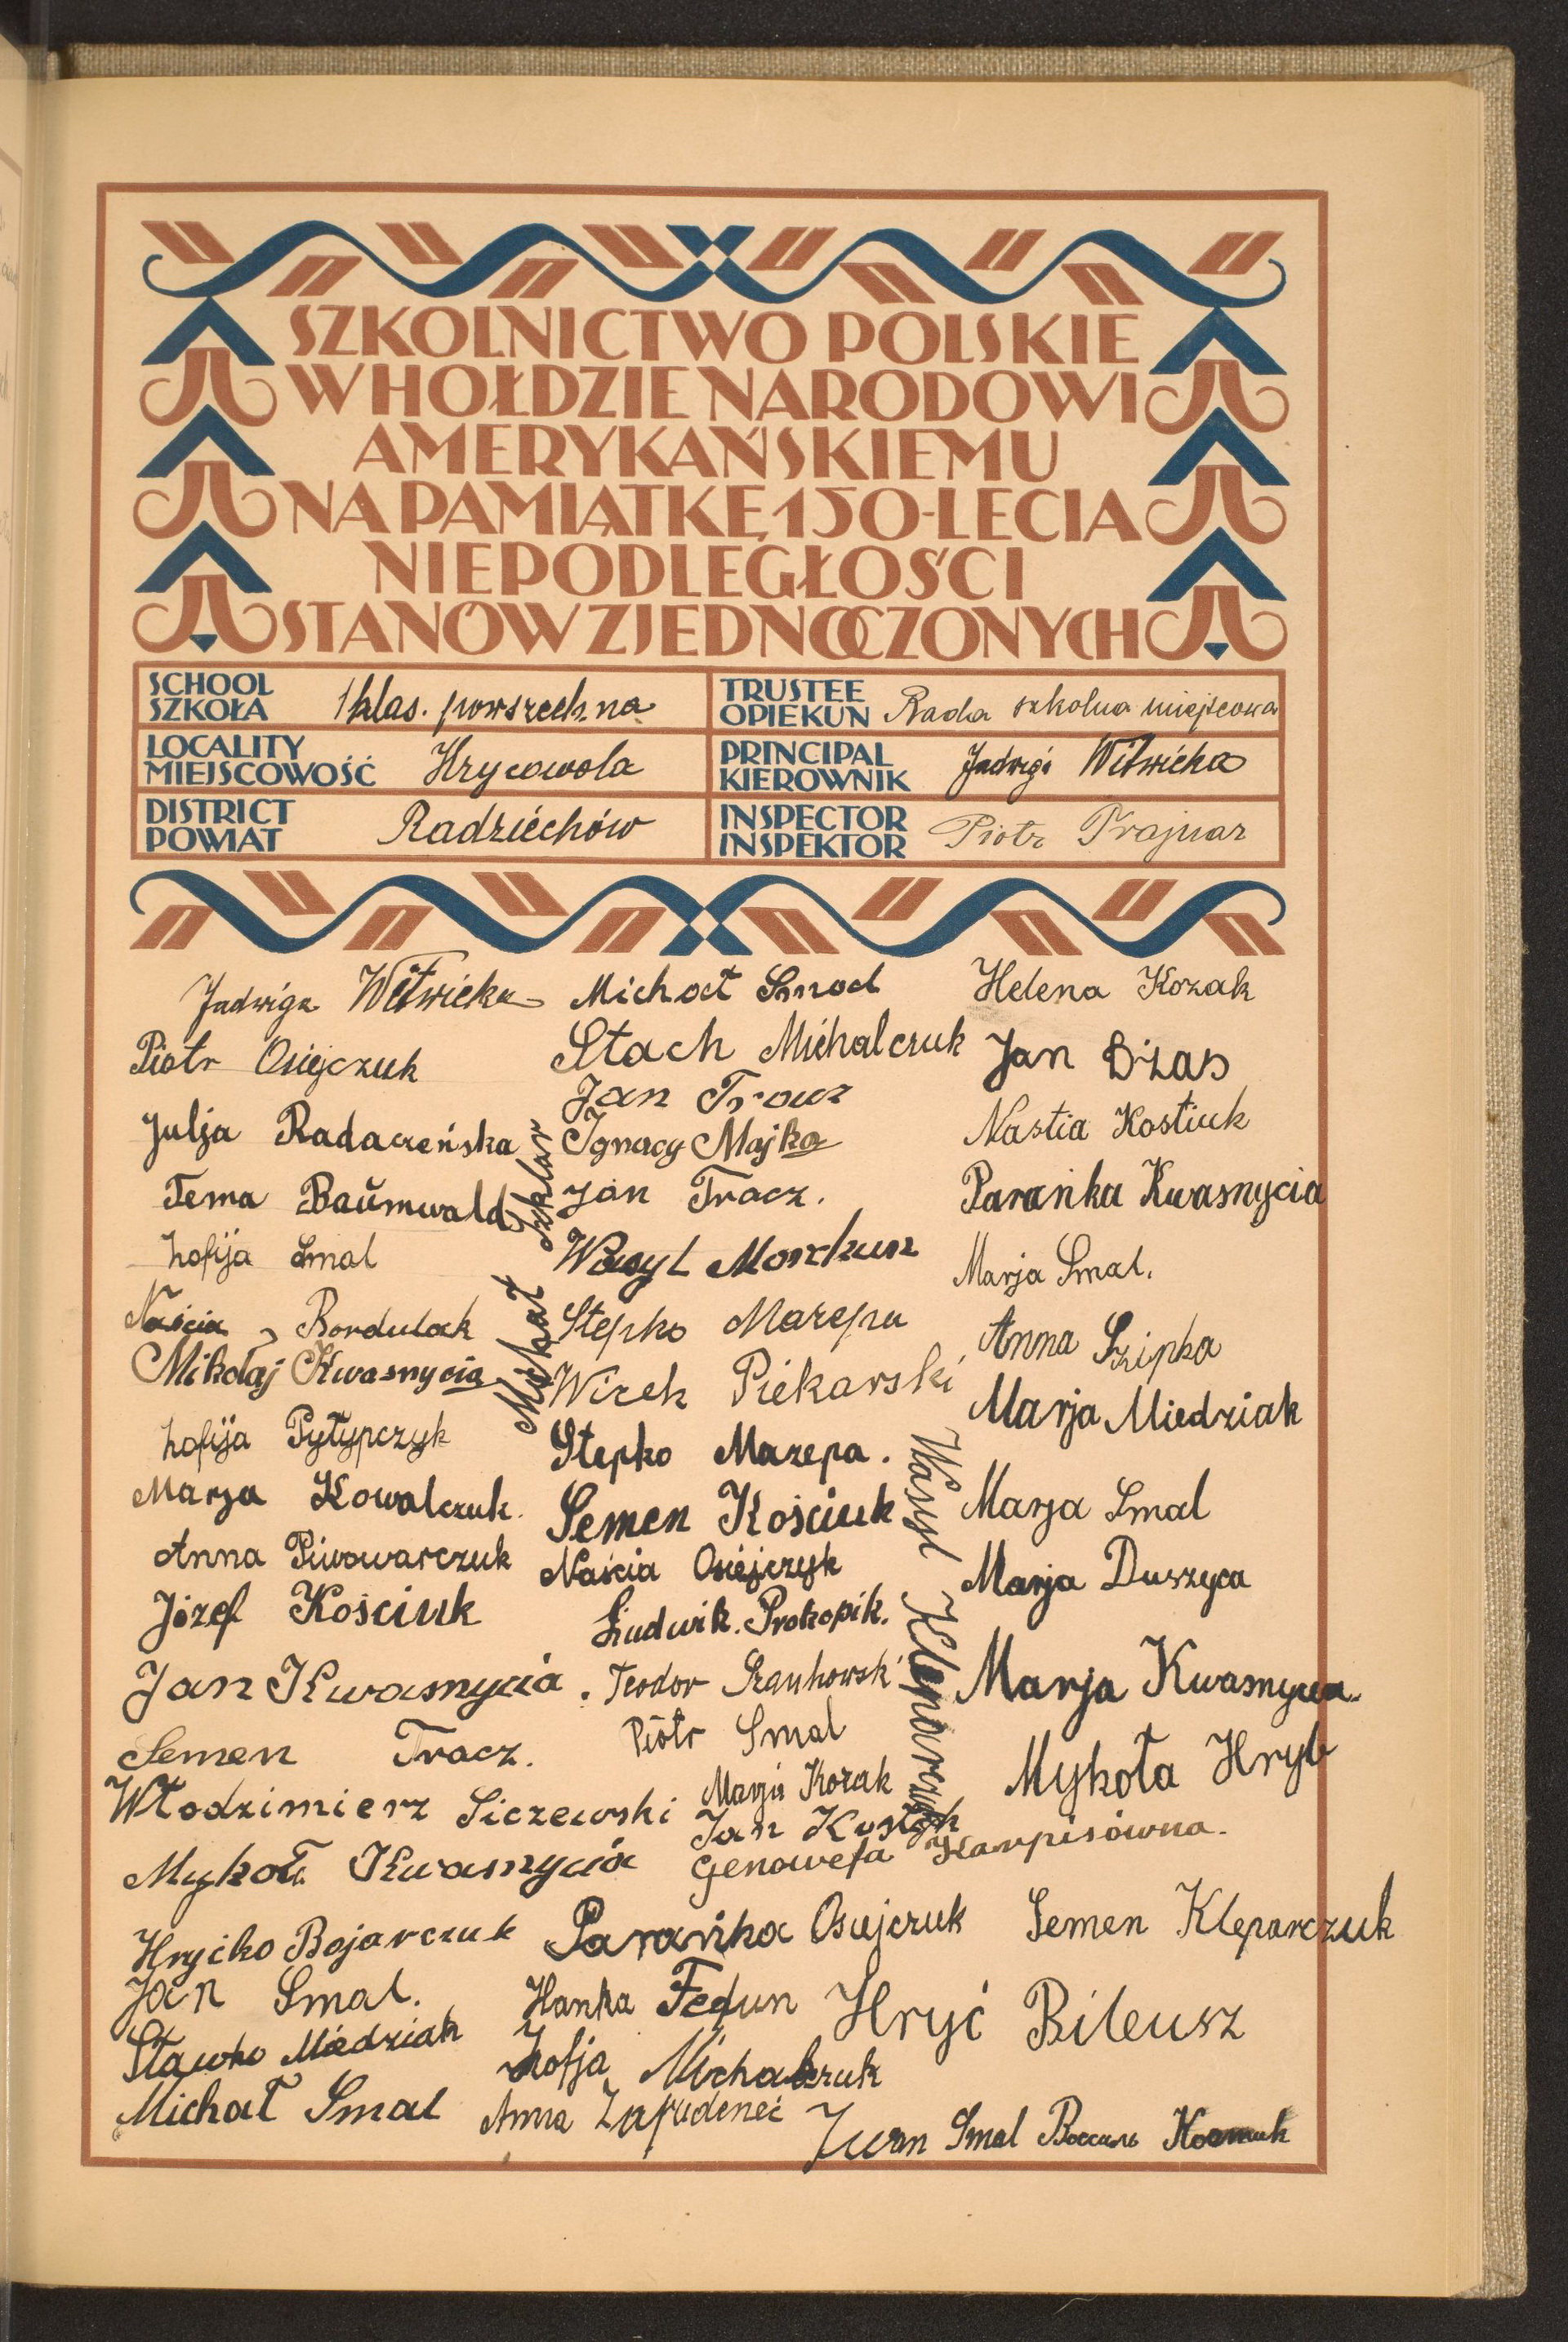 SZKOLNICTWO POLSKIE
W HOŁDZIE NARODOWI
AMERYKAŃSKIEMU
NA PAMIĄTKĘ 150-LECIA
NIEPODLEGŁOŚCI
STANÓW ZJEDNOCZONYCH
SCHOOL
SZKOŁA
1 klas. powszechna
TRUSTEE
OPIEKUN
Rada szkolna miejscowa
LOCALITY
MIEJSCOWOŚĆ
Hrycowola
PRINCIPAL
KIEROWNIK
Jadwiga Witwicka
DISTRICT
POWIAT
Radziechów
INSPECTOR
INSPEKTOR
Piotr Prajnar
Jadwiga Witwicka
Piotr Osiejczuk
Julja Radaczeńska
Tema Baŭmwald
Zofija Smal
Naścia Bordulak
Mikołaj Kwasnycia
Zofija Pyłypczyk
Marja Kowalczuk.
Anna Piwowarczuk
Józef Kościuk
Jan Kwasnycia.
Semen Tracz.
Włodzimierz Siczewski
Mykoła Kwasnycia
Hryćko Bojarczuk
Jan Smal.
Sławko Miedziak
Michał Smal
Michał Szklar
Michał Smod
Stach Michalczuk
Jan
Ignacy Majka
Jan Tracz.
Wasyl
Stepko Mazepa
Wirek Piekarski
Stepko Mazepa.
Semen Kościuk
Naścia Osiejczyk
Ludwik. Prokopik.
Teodor
Piotr Smal
Marja Kozak
Jan Kostyk
Genowefa Karpisówna.
Parańka Osiejczuk
Hanka Fedun
Zofja Michalczuk
Anna Zapudeneć
Wasyl Kleparczuk
Helena Kozak
Jan Bzas
Nastia Kostiuk
Parańka Kwasnycia
Marja Smal.
Anna Szipka
Marja Miedziak
Marja Smal
Marja Duszyca
Marja Kwasnycia
Mykoła Hryb
Semen Kleparczuk
Hryć Bileusz
Iwan Smal